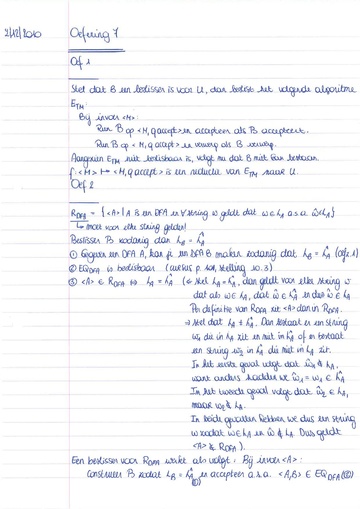 2/12/2010 Oefening 7
Of 1
Stel dat B een beslisser is voor U, dan beslist het volgende algoritme
E_TM:
Bij invoer <M>:
Run B op <M, q accept> en accepteer als B accepteert.
Run B op <M, q accept> en verwerp als B verwerp.
Aangezien E_TM niet beslisbaar is, volgt nu dat B niet kan bestaan.
f: <M> ↦ <M, q accept> is een reductie van E_TM naar U.
Oef 2
R_DFA = { <A> | A is een DFA en ∀ string w geldt dat w ∈ L_A a.s.a. ŵ ∈ L_A }
↳ moet voor elke string gelden!
Beslisser B zodanig dan L_B = L̂_A
① Gegeven een DFA A, kan je een DFA B maken zodanig dat L_B = L̂_A (oef 1)
② EQ_DFA is beslisbaar (cursus p. 101, stelling 10.3)
③ <A> ∈ R_DFA ⇔ L_A = L̂_A (⇐ stel L_A = L̂_A, dan geldt voor elke string w
dat als w ∈ L_A, dat ŵ ∈ L̂_A en dus ŵ ∈ L_A
Per definitie van R_DFA zit <A> dan in R_DFA.
⇒ stel dat L_A ≠ L̂_A. Dan bestaat er een string
w₁ die in L_A zit en niet in L̂_A of er bestaat
een string w₂ in L̂_A die niet in L_A zit.
In het eerste geval volgt dat ŵ₁ ∉ L_A,
want anders hadden we ŵ̂₁ = w₁ ∈ L̂_A
In het tweede geval volgt dat ŵ₂ ∈ L_A,
maar w₂ ∉ L_A.
In beide gevallen hebben we dus een string
w zodat w ∈ L_A en ŵ ∉ L_A. Dus geldt
<A> ∉ R_DFA).
Een beslisser voor R_DFA werkt als volgt: Bij invoer <A>:
Construeer B zodat L_B = L̂_A en accepteer a.s.a. <A,B> ∈ EQ_DFA (②)
(①)